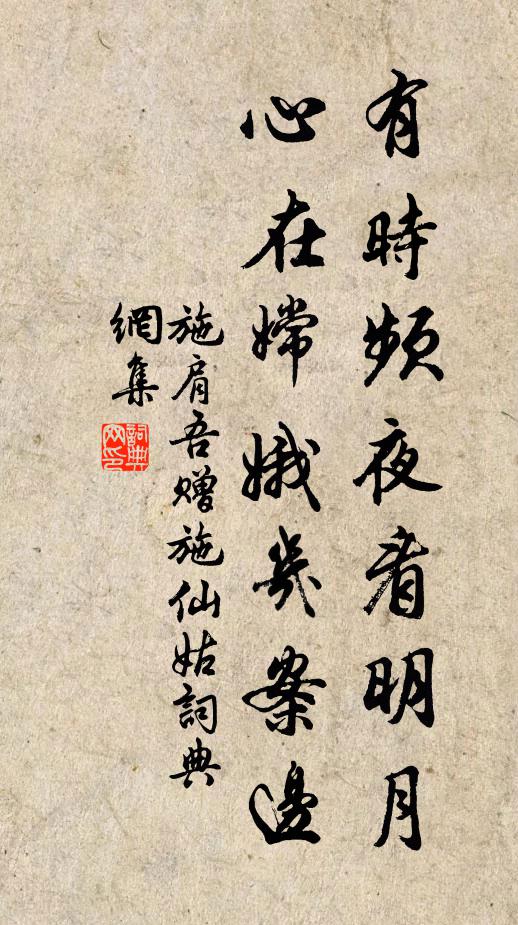 有時頻夜看明月
心在嫦娥幾案邊
施肩吾贈施仙姑詞典
網集
詞典
网印